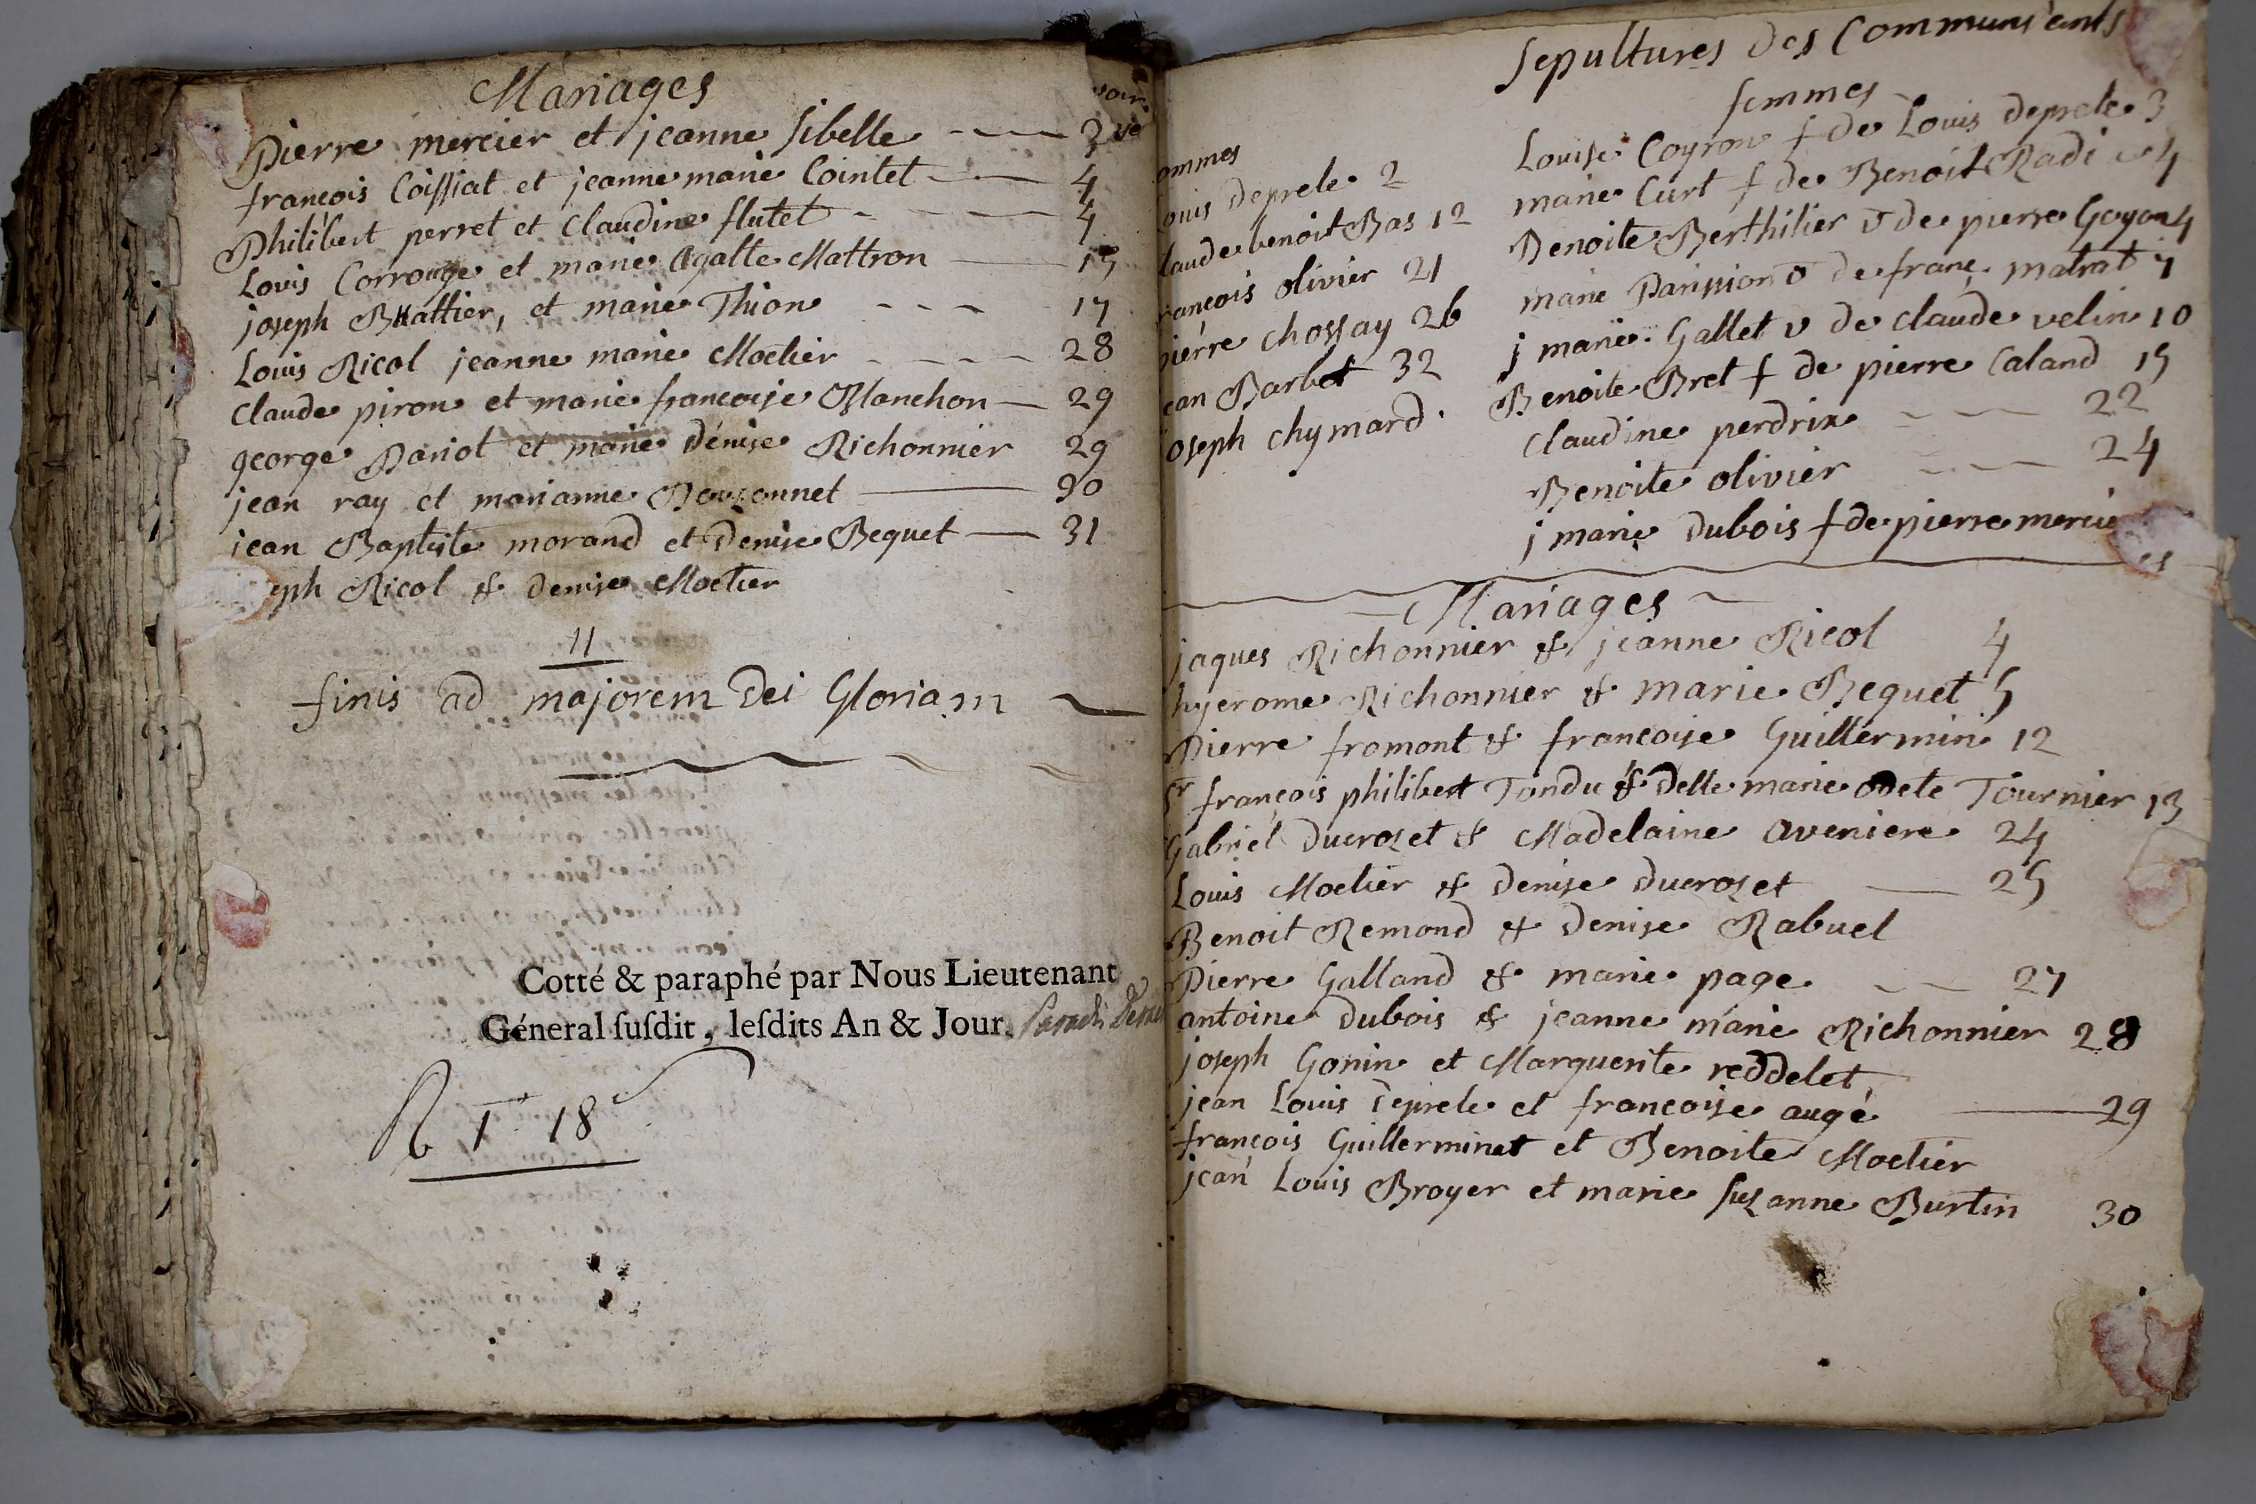 Mariages
Pierre mercier et jeanne sibelle 3
françois Coissiat et jeanne marie Cointet 4
Philibert perret et Claudine flutet 4
Louis Corrouge et marie Agatte Mattron 15
joseph Brattier, et marie Thion 17
Louis Ricol jeanne marie Moelier 28
Claude piron et marie françoise Blanchon 29
george Pariot et marie dénise Richonnier 29
jean ray et marianne Bouzonnet 30
jean Baptiste morand et Denise Bequet 31
eph Ricol & Denise Moelier
11
finis ad majorem Dei Gloriam
Cotté & paraphé par Nous Lieutenant
Géneral susdit, lesdits An & Jour.
R 1 18
Sepultures des Communiants
ommes
ouis deprele 2
laude benoit Bas 12
rançois olivier 21
pierre chossay 26
ean Barbet 32
oseph chymard
femmes
Louise Coyron f de Louis deprele 3
marie Curt f de Benoit Radi 4
Benoite Berthilier v de pierre Goyon 4
marie Parission v de franç. matrat 7
j marie Gallet v de claude velin 10
Benoite Bret f de pierre Caland 15
Claudine perdrix 22
Benoite olivier 24
j marie Dubois f de pierre mercie
Mariages
jaques Richonnier & jeanne Ricol 4
hyerome Richonnier & marie Bequet 5
Pierre fromont & françoise Guillermin 12
Sr françois philibert Tondu & Delle marie odete Tournier 13
Gabriel Ducrozet & Madelaine aveniere 24
Louis Moelier & Denise Ducrozet 25
Benoit Remond & Denise Rabuel
Pierre Galland & marie page 27
antoine Dubois & jeanne marie Richonnier 28
joseph Gonin et Marguerite reddelet
jean Louis Deprele et françoise augé 29
françois Guillerminet et Benoite Moelier
jean Louis Broyer et marie Suzanne Burtin 30